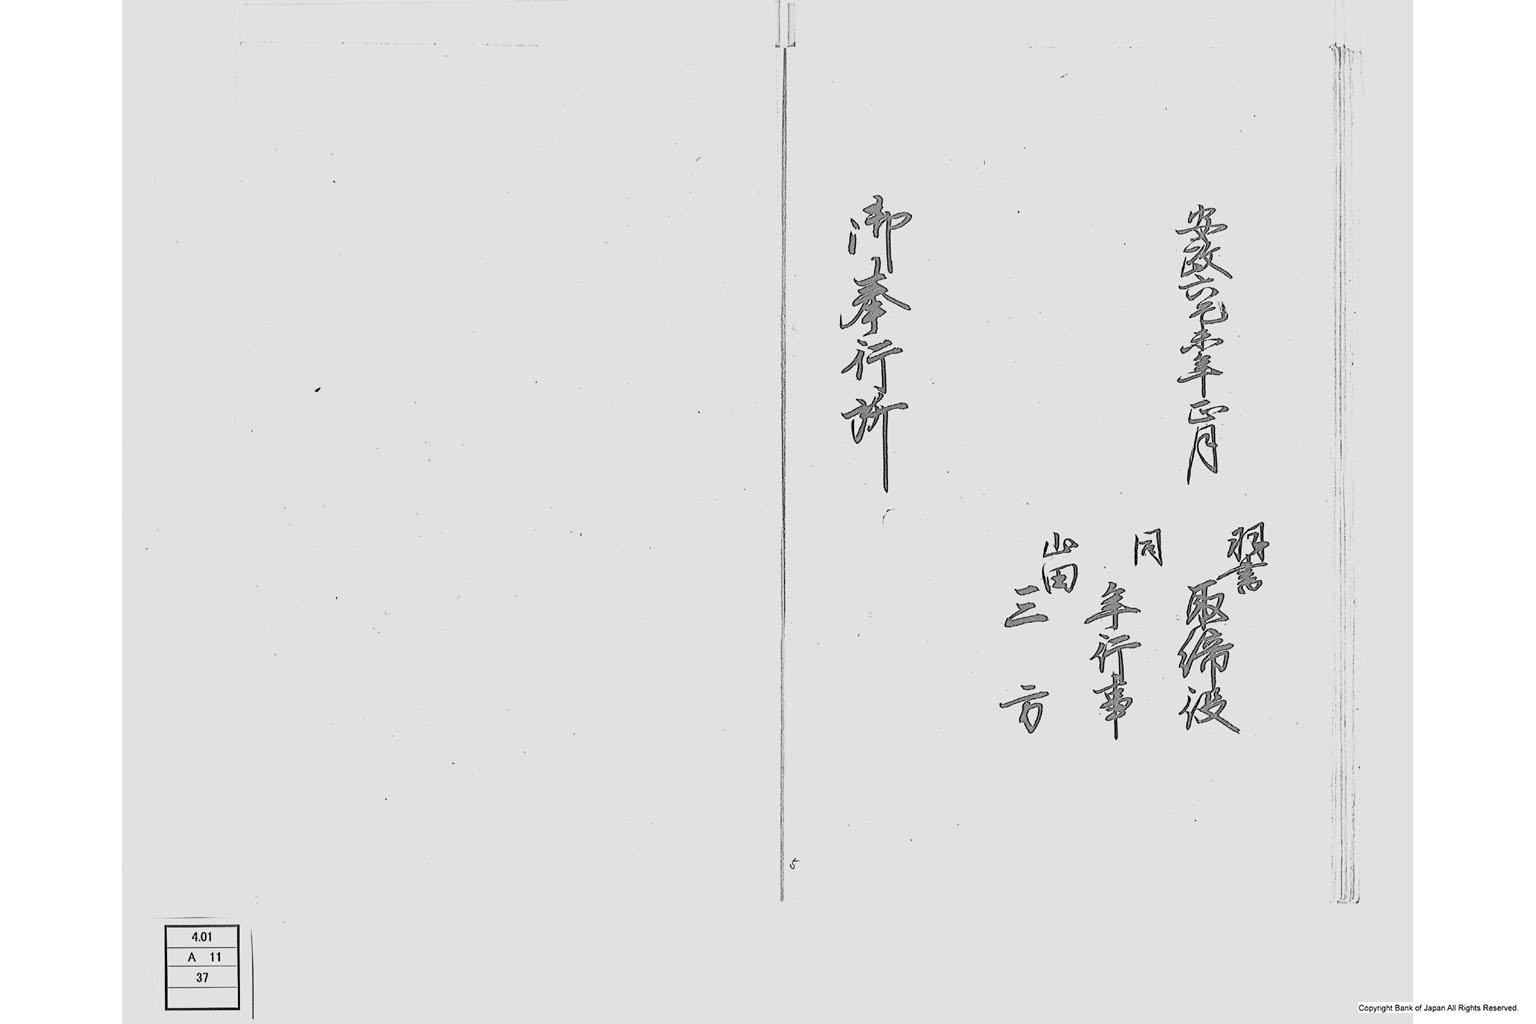 安政六己未年正月
羽書
取締役
同
年行事
山田
三方
御奉行所
5
4.01
A 11
37
Copyright Bank of Japan All Rights Reserved.